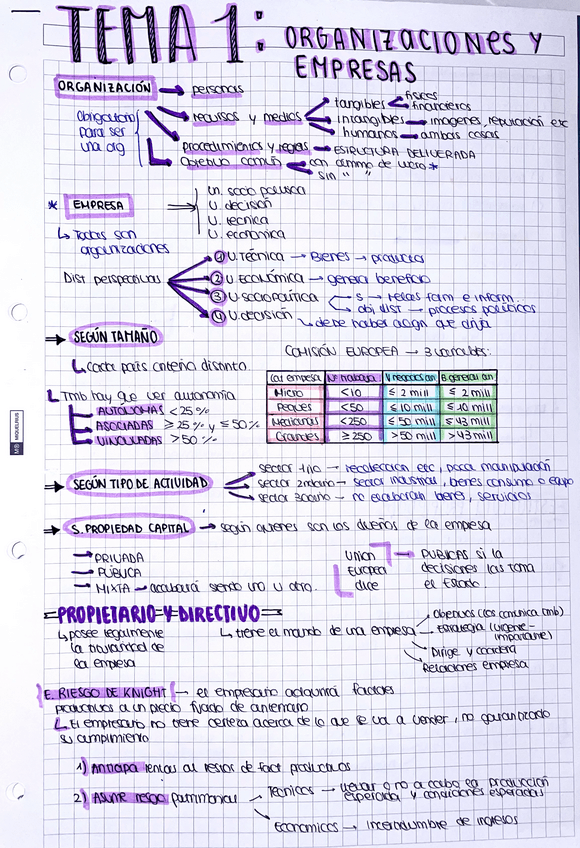 TEMA 1: ORGANIZACIONES Y
EMPRESAS
ORGANIZACIÓN → personas
Obligatorio para ser una org
recursos y medios
tangibles
físicos
financieros
intangibles → imagenes, reputación etc
humanos → ambas cosas
procedimientos y reglas → ESTRUCTURA DELIVERADA
Objetivo común
con ánimo de lucro *
sin " "
* EMPRESA
↳ Todas son organizaciones
Un. socio política
U. decisión
U. técnica
U. económica
Dist perspectivas
1 U. Técnica → Bienes → productos
2 U ECONÓMICA → genera beneficio
3 U SOCIOPOLÍTICA
S → relas form e inform.
obj dist → procesos políticos
4 U. decisión
↳ debe haber algn que dirija
⇒ SEGÚN TAMAÑO
↳ Cada país criterio distinto
COMISIÓN EUROPEA → 3 variables:
↳ Tmb hay que ver autonomía
AUTÓNOMAS < 25%
ASOCIADAS ≥ 25% y ≤ 50%
VINCULADAS > 50%
Cat empresa | Nº trabaja | V negocios an | B general an
Micro | <10 | ≤ 2 mill | ≤ 2 mill
Peques | <50 | ≤ 10 mill | ≤ 10 mill
Medianas | <250 | ≤ 50 mill | ≤ 43 mill
Grandes | ≥ 250 | >50 mill | >43 mill
⇒ SEGÚN TIPO DE ACTIVIDAD
sector 1rio → recolección etc, poca manipulación
sector 2ndario → sector industrias, bienes consumo o equipo
sector 3ciario → no elaboran bienes, servicios
⇒ S. PROPIEDAD CAPITAL → según quienes son los dueños de la empresa
→ PRIVADA
→ PÚBLICA
→ MIXTA → acabará siendo uno u otro.
Union Europea dice → PÚBLICAS si la decisiones las toma el Estado.
PROPIETARIO Y DIRECTIVO
↳ posee legalmente la titularidad de la empresa
↳ tiene el mando de una empresa
Objetivos (los comunica tmb)
Estrategia (urgente-importante)
Dirige y coordera
Relaciones empresa
E. RIESGO DE KNIGHT → el empresario adquirirá factores
productivos a un precio fijado de antemano
↳ El empresario no tiene certeza acerca de lo que se va a vender, no garantizado
su cumplimiento
1) Anticipa rentas al resto de fact productivos
2) Asume riesgo patrimonial
Técnicos → llevar o no a cabo la producción esperada y condiciones esperadas
Económicos → incertidumbre de ingresos
MIQUELRIUS